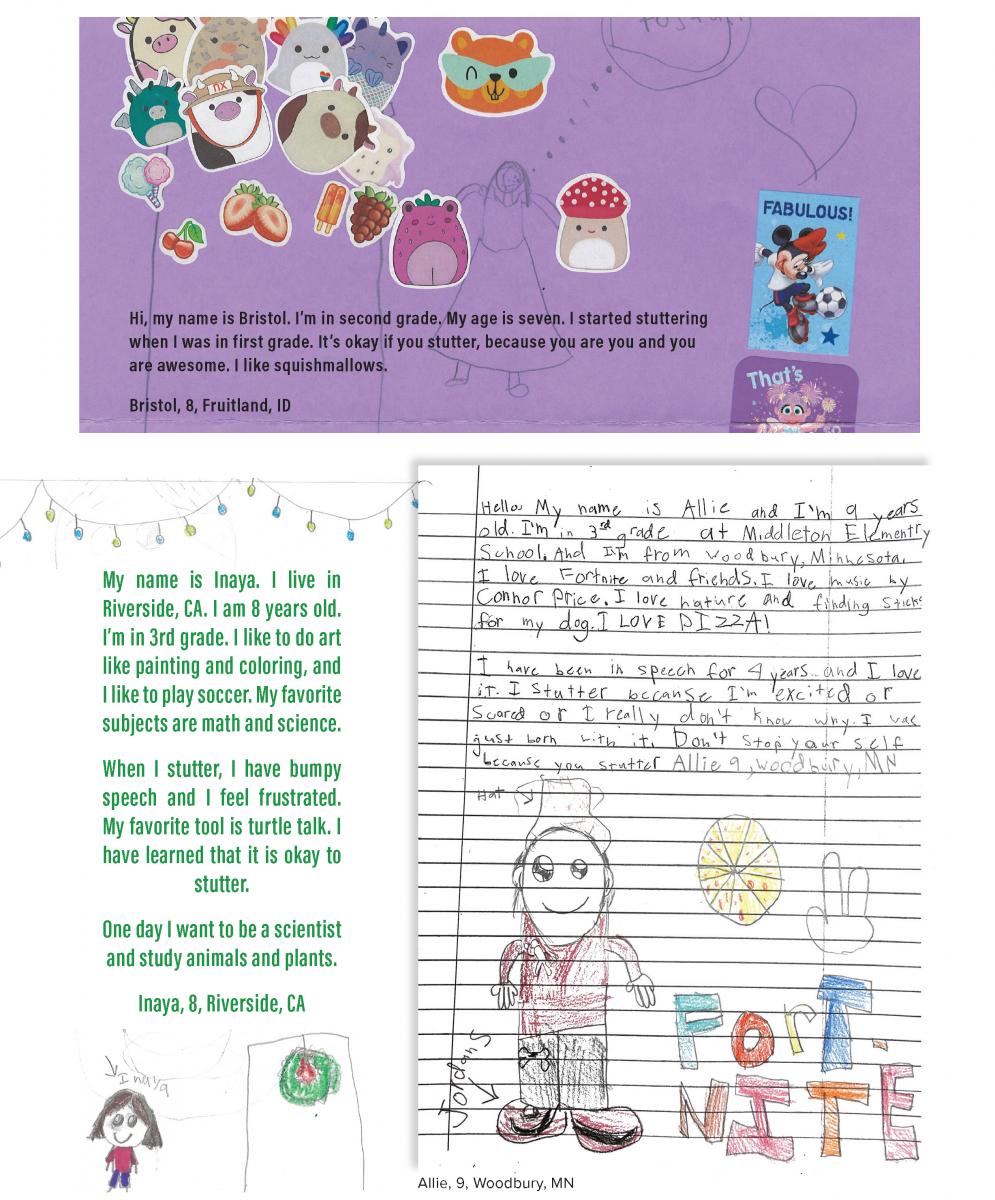 FABULOUS!
Hi, my name is Bristol. I'm in second grade. My age is seven. I started stuttering
when I was in first grade. It's okay if you stutter, because you are you and you
are awesome. I like squishmallows.
Bristol, 8, Fruitland, ID
That's
SO
My name is Inaya. I live in
Riverside, CA. I am 8 years old.
I'm in 3rd grade. I like to do art
like painting and coloring, and
I like to play soccer. My favorite
subjects are math and science.
When I stutter, I have bumpy
speech and I feel frustrated.
My favorite tool is turtle talk. I
have learned that it is okay to
stutter.
One day I want to be a scientist
and study animals and plants.
Inaya, 8, Riverside, CA
Inaya
Hello My name is Allie and I'm 9 years
old. I'm in 3rd grade at Middleton Elementry
School. And I'm from woodbury, Minnesota.
I love Fortnite and friends. I love music by
Connor Price. I love nature and finding sticks
for my dog. I LOVE PIZZA!
I have been in speech for 4 years and I love
it. I Stutter because I'm excited or
Scared or I really don't know why. I was
just born with it. Don't Stop your self
because you stutter Allie 9, woodbury, MN
Hat
Jordans
FORT.
NITE
Allie, 9, Woodbury, MN